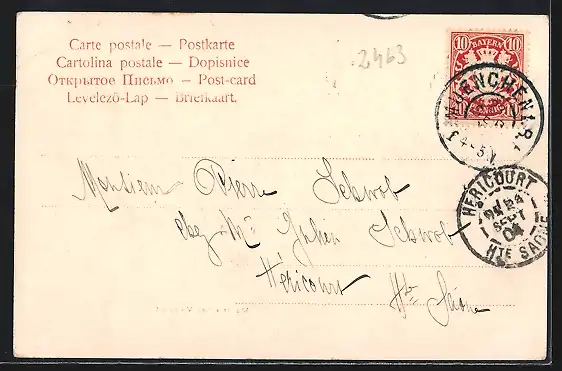 Carte postale — Postkarte
Cartolina postale — Dopisnice
Открытое Письмо — Post-card
Levelező-Lap — Briefkaart.
2463
10 BAYERN 10
MUENCHEN
4-5
HERICOURT
24
SEPT
04
HTE SAONE
Monsieur Pierre Schwob
chez Mr Schwob
Héricourt
Hte Saône